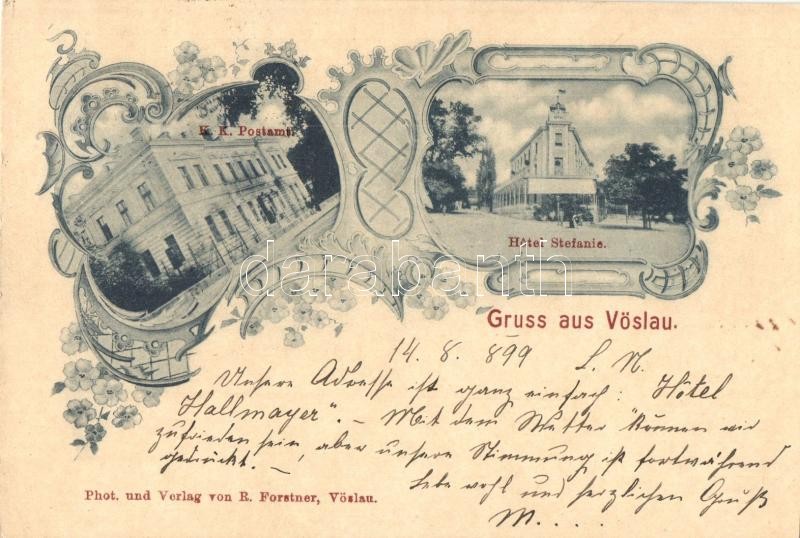 K. K. Postamt.
Hôtel Stefanie.
darabanth
Gruss aus Vöslau.
14. 8. 899 L. N.
Unsere Adresse ist ganz einfach: Hôtel
Hallmayer". – Mit dem Wetter können wir
zufrieden sein, aber unsere Stimmung ist fortwährend
gedrückt. –
Lebe wohl und herzlichen Gruß
M....
Phot. und Verlag von R. Forstner, Vöslau.